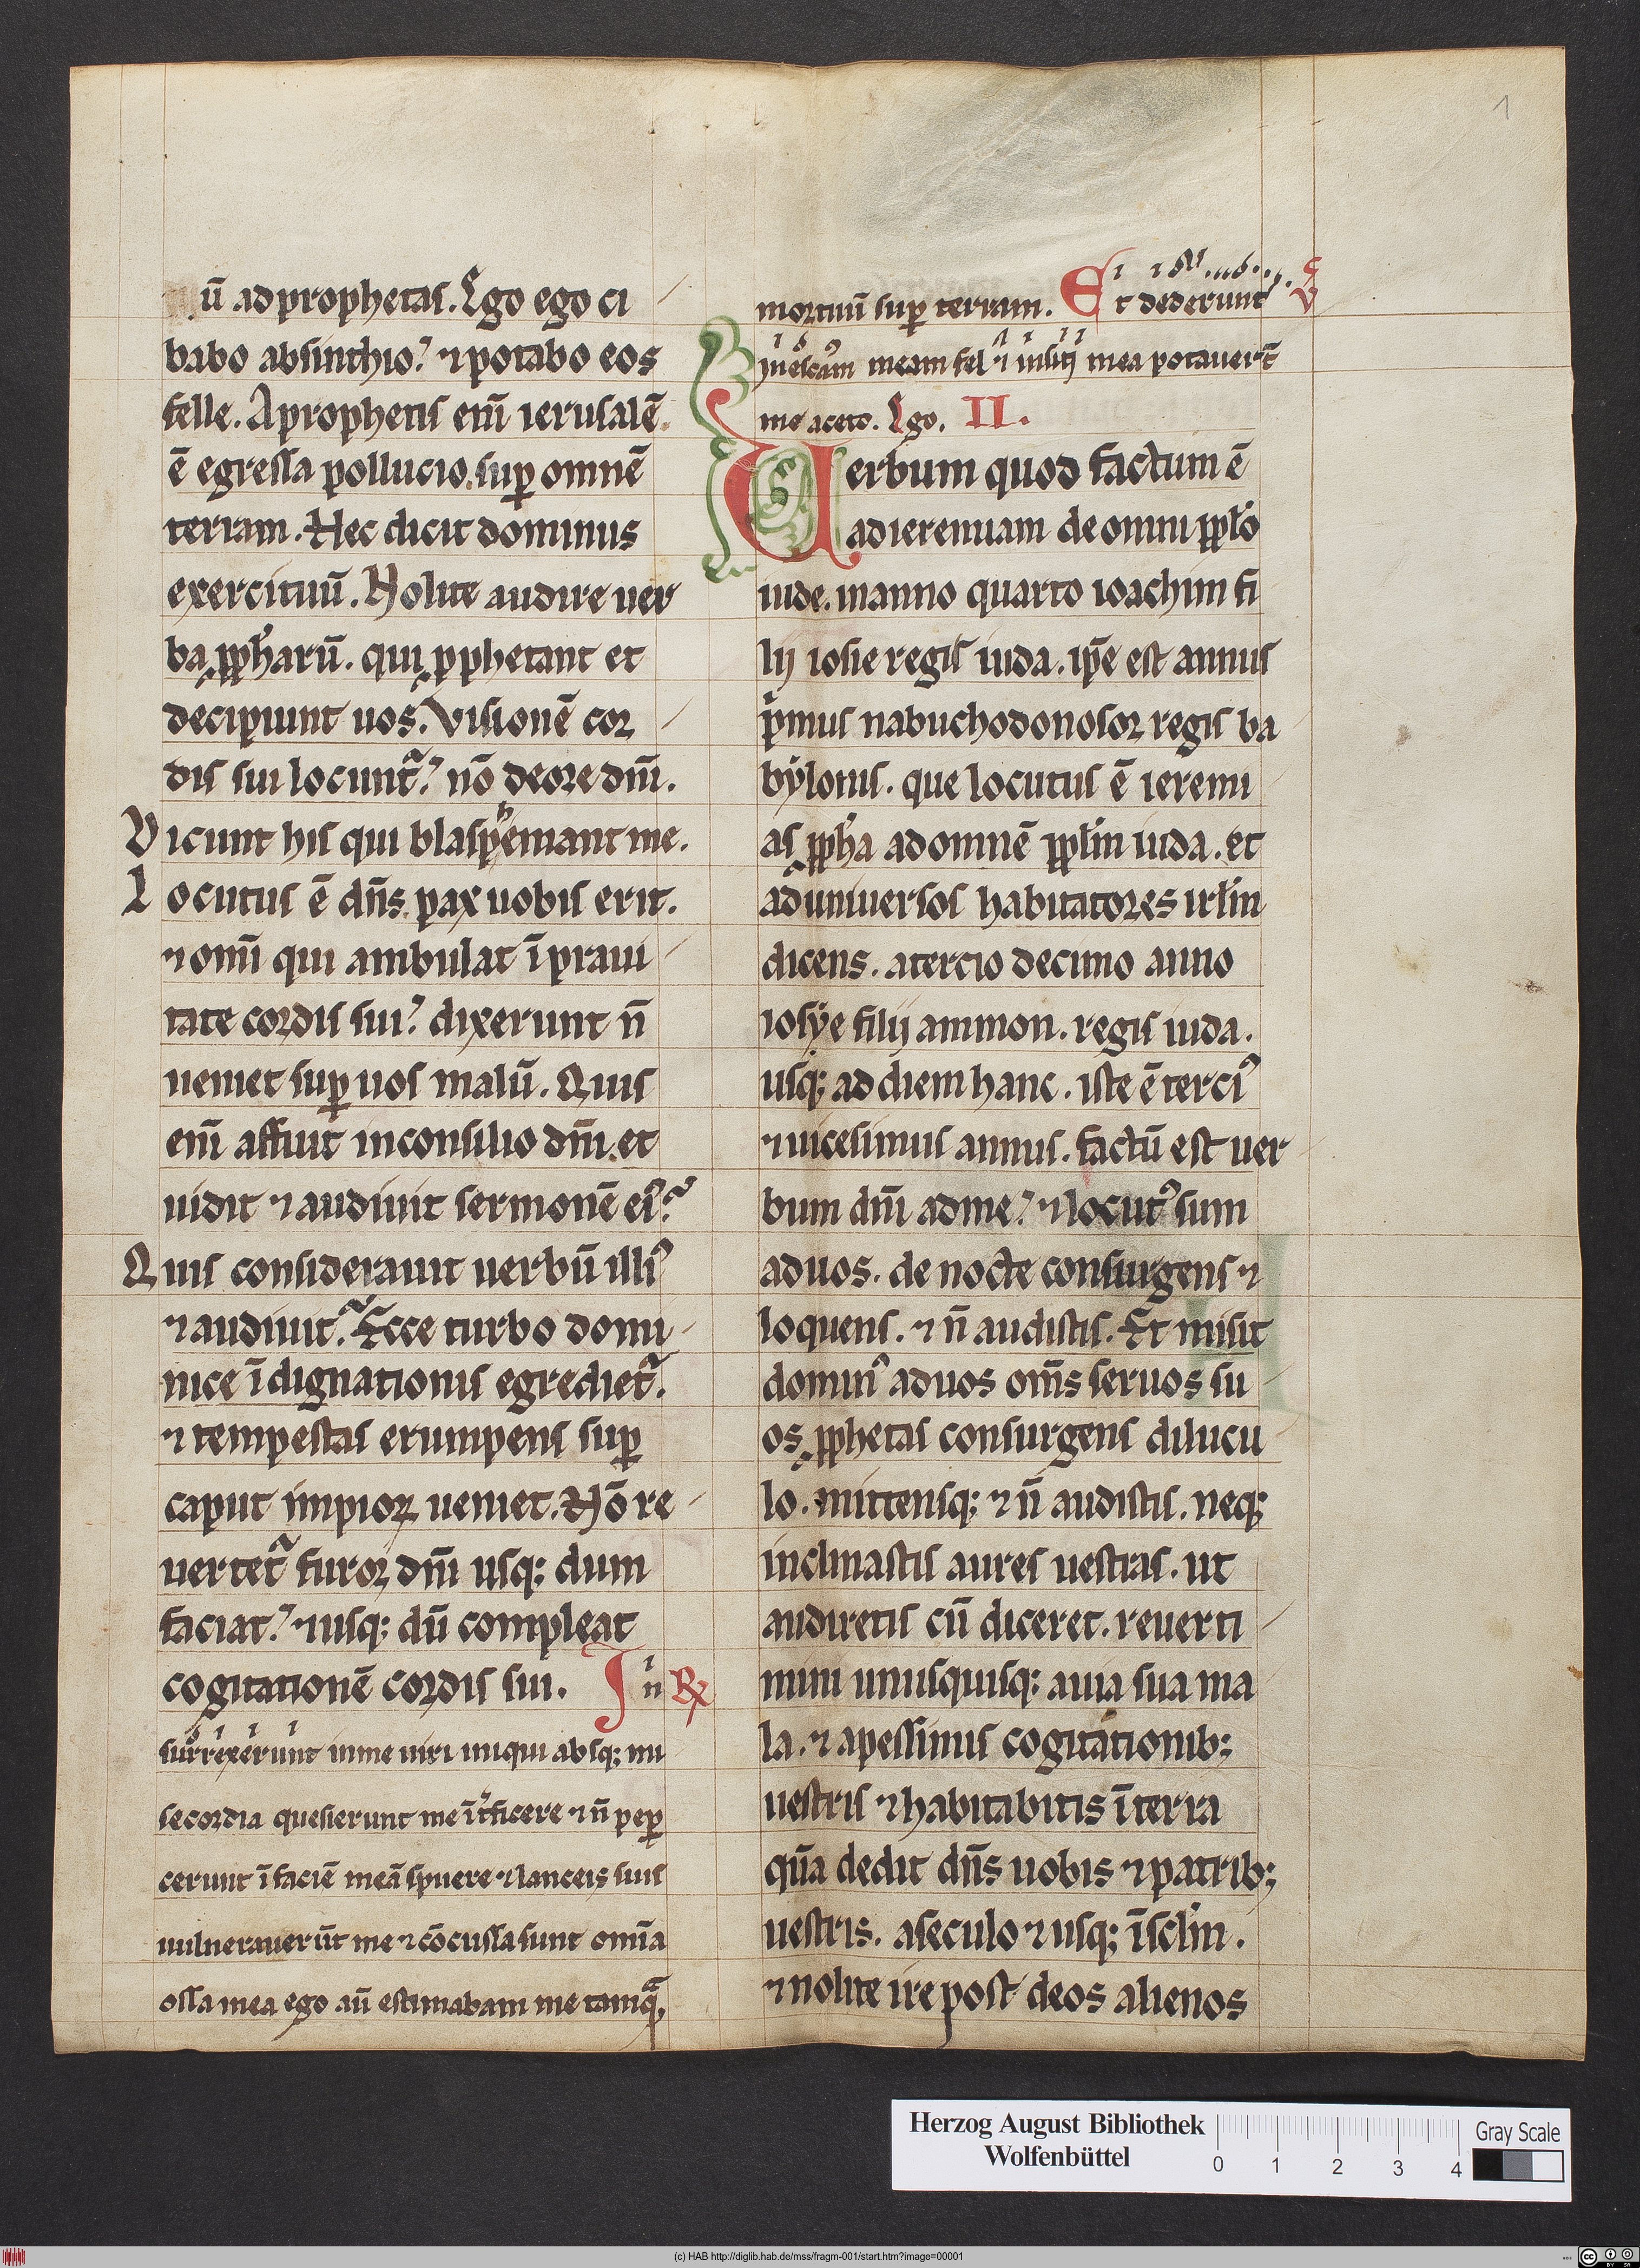 ū ad prophetas. Ego ego ci
babo absinthio? ⁊ potabo eos
felle. A prophetis eni̅ ierusalē.
ē egressa pollucio. sup̱ omnē
terram. Hec dicit dominus
exercituū. Nolite audire uer
ba ꝓph̅arū. qui ꝓphetant et
decipiunt uos. Visionē cor
dis sui locunt᷑? nō de ore dn̅i.
Dicunt his qui blasphemant me.
Locutus ē dn̅s. pax uobis erit.
⁊ omi̅ qui ambulat ī praui
tate cordis sui? dixerunt n̅
ueniet sup̱ uos malū. Quis
eni̅ affuit in consilio dn̅i. et
uidit ⁊ audiuit sermonē ei⁹?
Quis considerauit uerbū illi⁹
⁊ audiuit? Ecce turbo domi
nice īdignationis egrediet᷑.
⁊ tempestas erumpens sup̱
caput impioꝝ ueniet. Nō re
uertet᷑ furor dn̅i usq; dum
faciat? ⁊ usq; dū compleat
cogitationē cordis sui. In ℟
surrexerunt in me uiri iniqui absq; mi
secordia quesierunt me īt̕ficere ⁊ n̅ pep̱
cerunt ī faciē meā spuere ⁊ lanceis suis
uulnerauer̄ut me ⁊ cōcussa sunt omi̅a
ossa mea ego au̅ estimabam me tamꝗ̃
mortuū sup̱ terram. Et dederunt ℣
in escam meam fel ⁊ in siti mea potauer̄t
me aceto. Ego. II.
Uerbum quod factum ē
ad ieremiam de omni ppl̅o
iude. in anno quarto ioachim fi
lij iosie regis iuda. ip̅e est annus
pͥmus nabuchodonosor regis ba
bylonis. que locutus ē ieremi
as ꝓph̅a ad omnē ppl̅m iuda. et
ad uniuersos habitatores irl̅m
dicens. a tercio decimo anno
iosye filij ammon. regis iuda.
usq; ad diem hanc. iste ē terci⁹
⁊ uicesimus annus. factū est uer
bum dn̅i ad me? ⁊ locut⁹ sum
ad uos. de nocte consurgens ⁊
loquens. ⁊ n̅ audistis. Et misit
domin⁹ ad uos om̅s seruos su
os ꝓphetas consurgens dilucu
lo. mittensq; ⁊ n̅ audistis. neq;
inclinastis aures uestras. ut
audiretis cū diceret. reuerti
mini unusquisq; a uia sua ma
la. ⁊ a pessimis cogitationib;
uestris ⁊ habitabitis ī terra
qūa dedit dn̅s uobis ⁊ patrib;
uestris. a seculo ⁊ usq; ī scl̅m.
⁊ nolite ire post deos alienos
1
Herzog August Bibliothek
Wolfenbüttel
0 1 2 3 4
Gray Scale
(c) HAB http://diglib.hab.de/mss/fragm-001/start.htm?image=00001